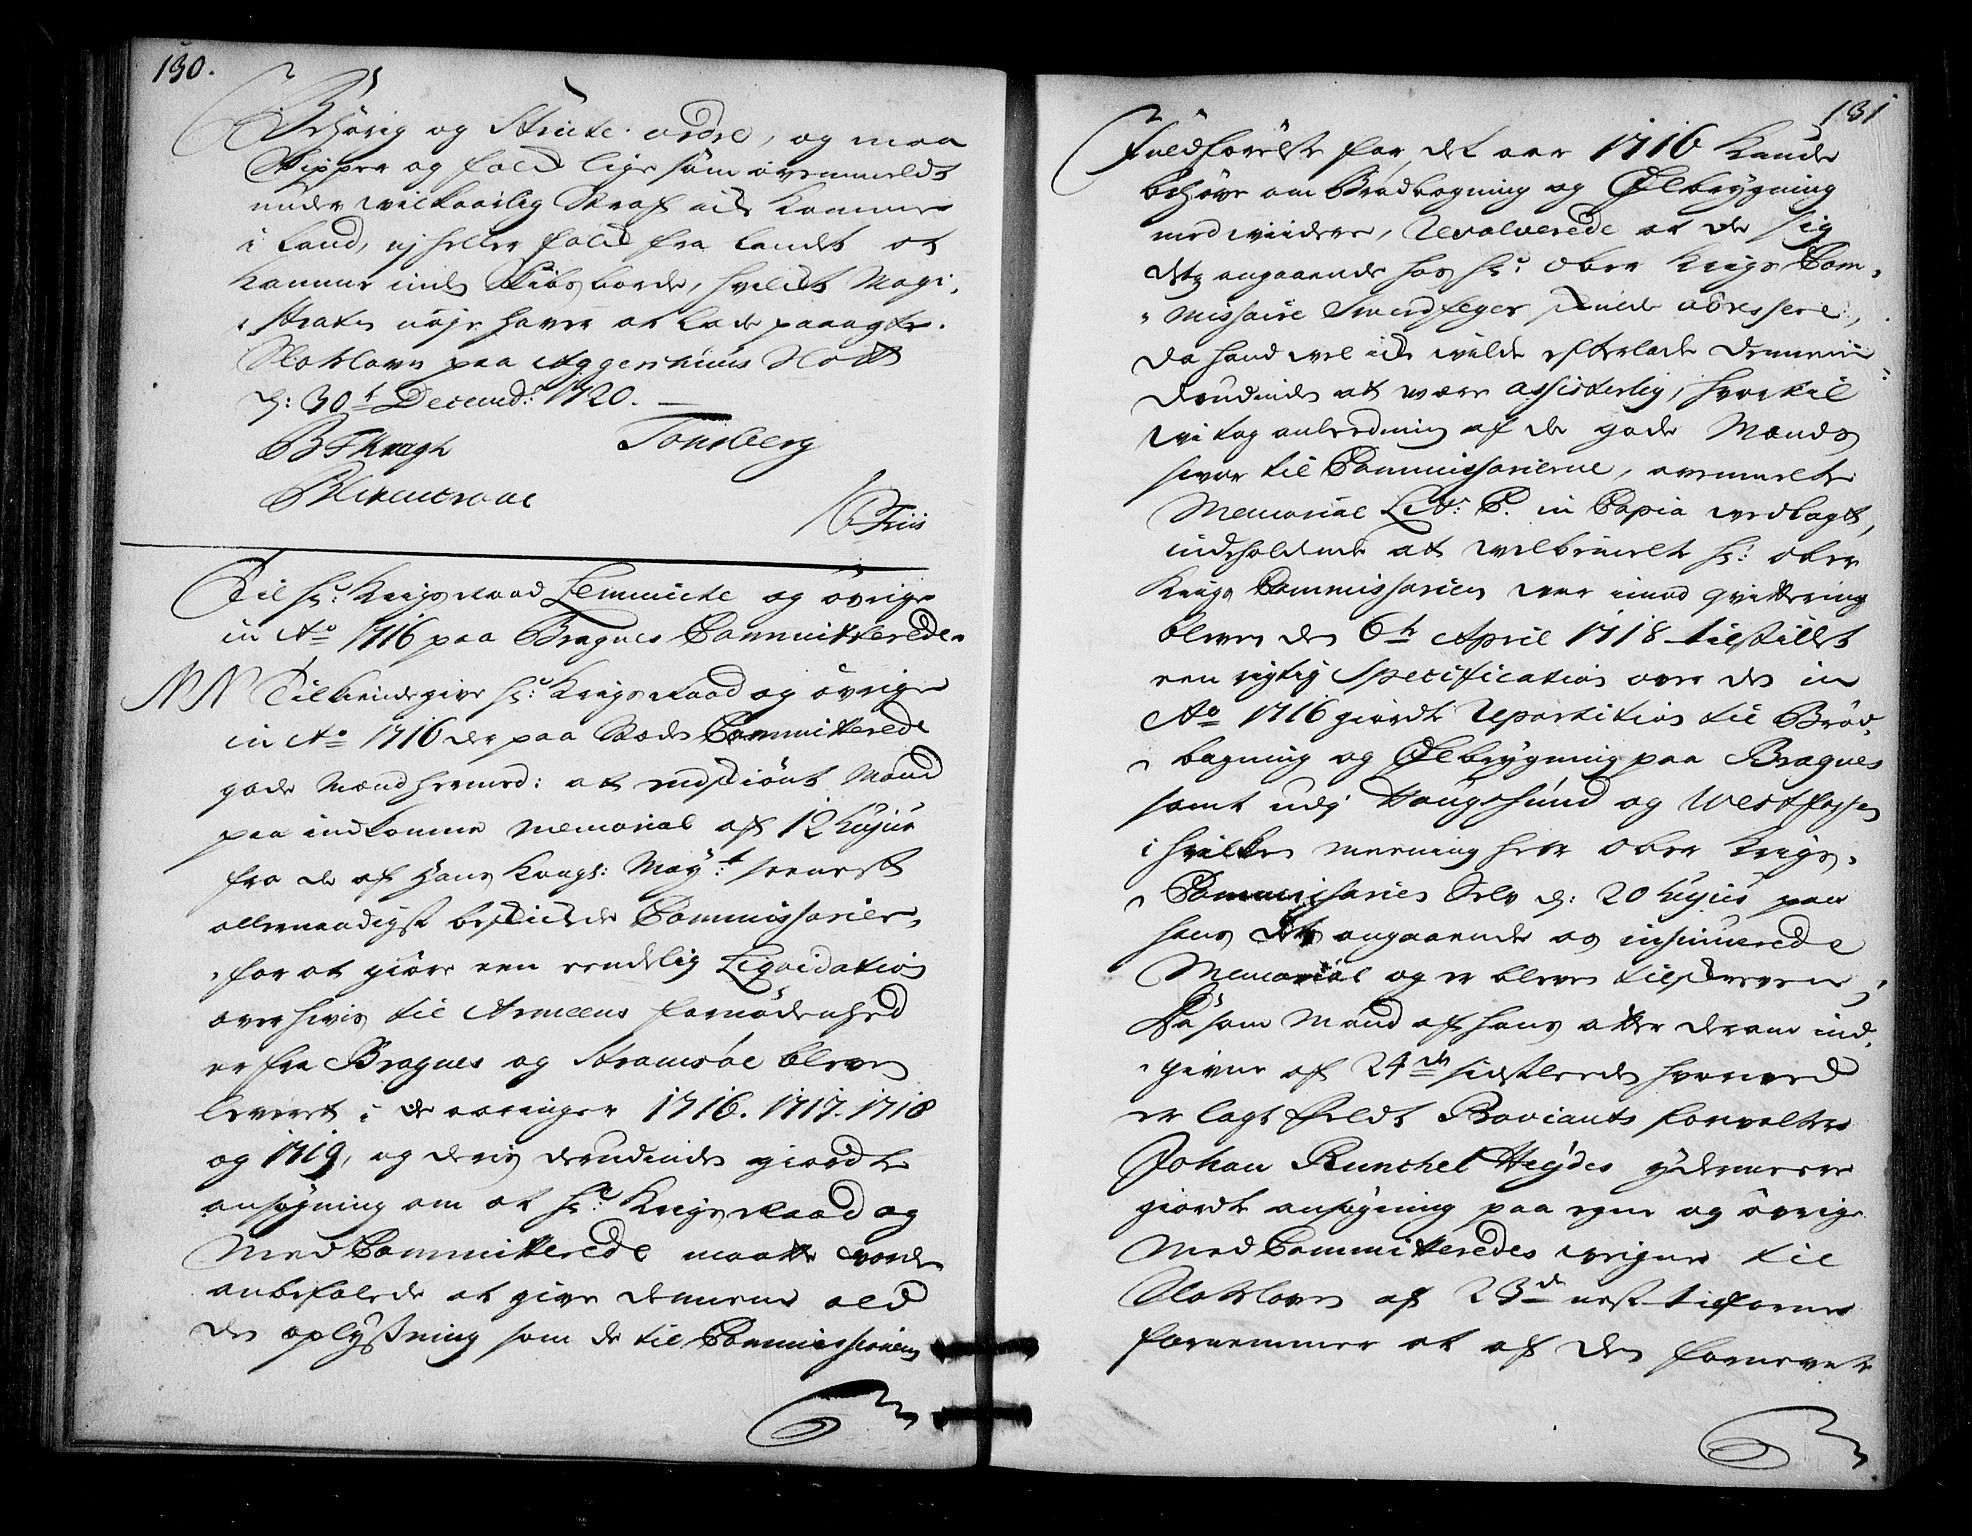 130.
Behörig og stricte ordre, og maa
Skipper og folch lige som ovenmelt
under vilkaarlig straf icke komme
i Land, ej heller folch fra Landet at
komme inden Skibs borde, hvilchet Magi-
straten nöje haver at lade paaagte.
Slotsloven paa Aggershuus Slott
d: 30t Decembr: 1720.
B F Kragh Tonsberg
Blixencrone
C Friis
Til Hr: Krigs Raad Lemmiche og övrige
in Ao 1716 paa Bragnes Committerede.
NN Tilkiende give Hr: Krigs Raad og övrige
in Ao 1716 der paa Stæden Committerede
gode Mænd hermed: at endskiönt Mand
paa indkomne Memorial af 12 hujus
fra de af Hans Kongl: Mayt: seeneste
allernaadigst beskickede Commissarier,
for at giöre een endelig Liqvidation
over hvis til Armeens fornödenhed
er fra Bragnes og Strömsöe bleven
leveret i de aaringer 1716. 1717. 1718
og 1719, og deris derudinden giordte
ansögning om at Hr: Krigs Raad og
Med Committerede maatte vorde
anbefalede at give dennem ald
den oplysning som de til Commissionens
131
Fuldförelse for det aar 1716 kunde
behöve om Brödbagning og Ölbrygning
med videre, Resolverede at de sig
dets angaaende hos Hr: Ober Krigs Com-
missaire Swerdfeger skulde adressere,
da hand vel icke vilde efterlade dennem
derudinden at være assisterlig, hvortil
vi tog anledning af de gode Mænds
svar til Commissarierne, ovenmelte
Memorial Litr: C. in Copia vedlagt,
indeholdende at velbemelte Hr: Ober
Krigs Commissarien var imod qvittering
bleven den 6t April 1718 tilstillet
een rigtig Specification over den in
Ao 1716 giordte Repartition til Bröd-
bagning og Ölbrygning paa Bragnes
samt udj Haugsund og Westfossen
i hvilken meening herr Ober Krigs-
Commissarien Selv d: 20 hujus paa
hans dets angaaende os insinuerede
Memorial og er bleven tilskreven;
Da som Mand af hans atter derom ind-
givne af 24de sidstleeden hvorved
er lagt Feldt Proviants forvalter
Johan Runchel Heÿdes ydermeere
giordte ansögning paa egne og övrige
Med Committeredes vegne til
Slotsloven af 23de nest tilforne
fornemmer at af den forrevet